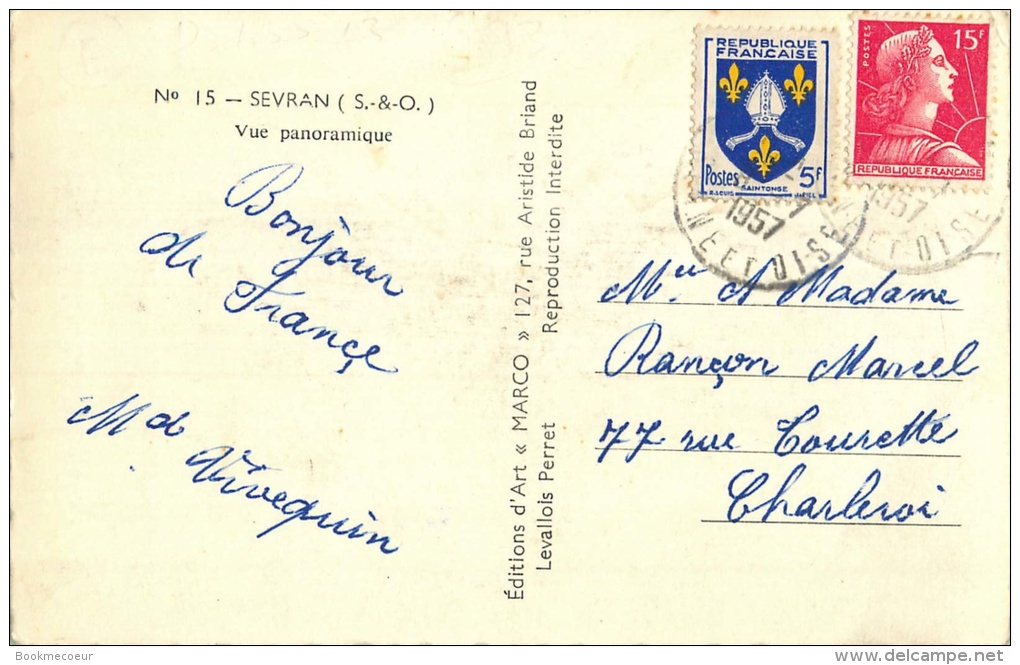 No 15 — SEVRAN ( S.-&-O. )
Vue panoramique
Bonjour
de
France
Md
Vivequin
Éditions d'Art « MARCO » 127, rue Aristide Briand
Levallois Perret Reproduction Interdite
REPUBLIQUE
FRANCAISE
Postes 5F
SAINTONGE
POSTES
15F
REPUBLIQUE FRANÇAISE
1957
NE ET OISE
1957
ET OISE
Madame
Rançon Marcel
77 rue Tourette
Charleroi
Bookmecoeur
delcampe.net